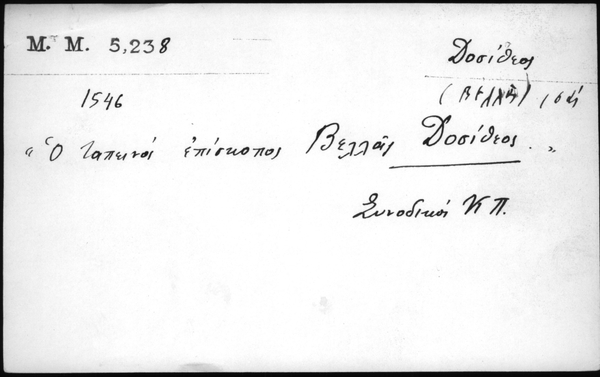 M. M. 5,238
Δοσίθεος
1546
(Βελλᾶς)
" Ὁ ταπεινὸς ἐπίσκοπος Βελλᾶς Δοσίθεος. "
Συνοδικοί Κ Π.